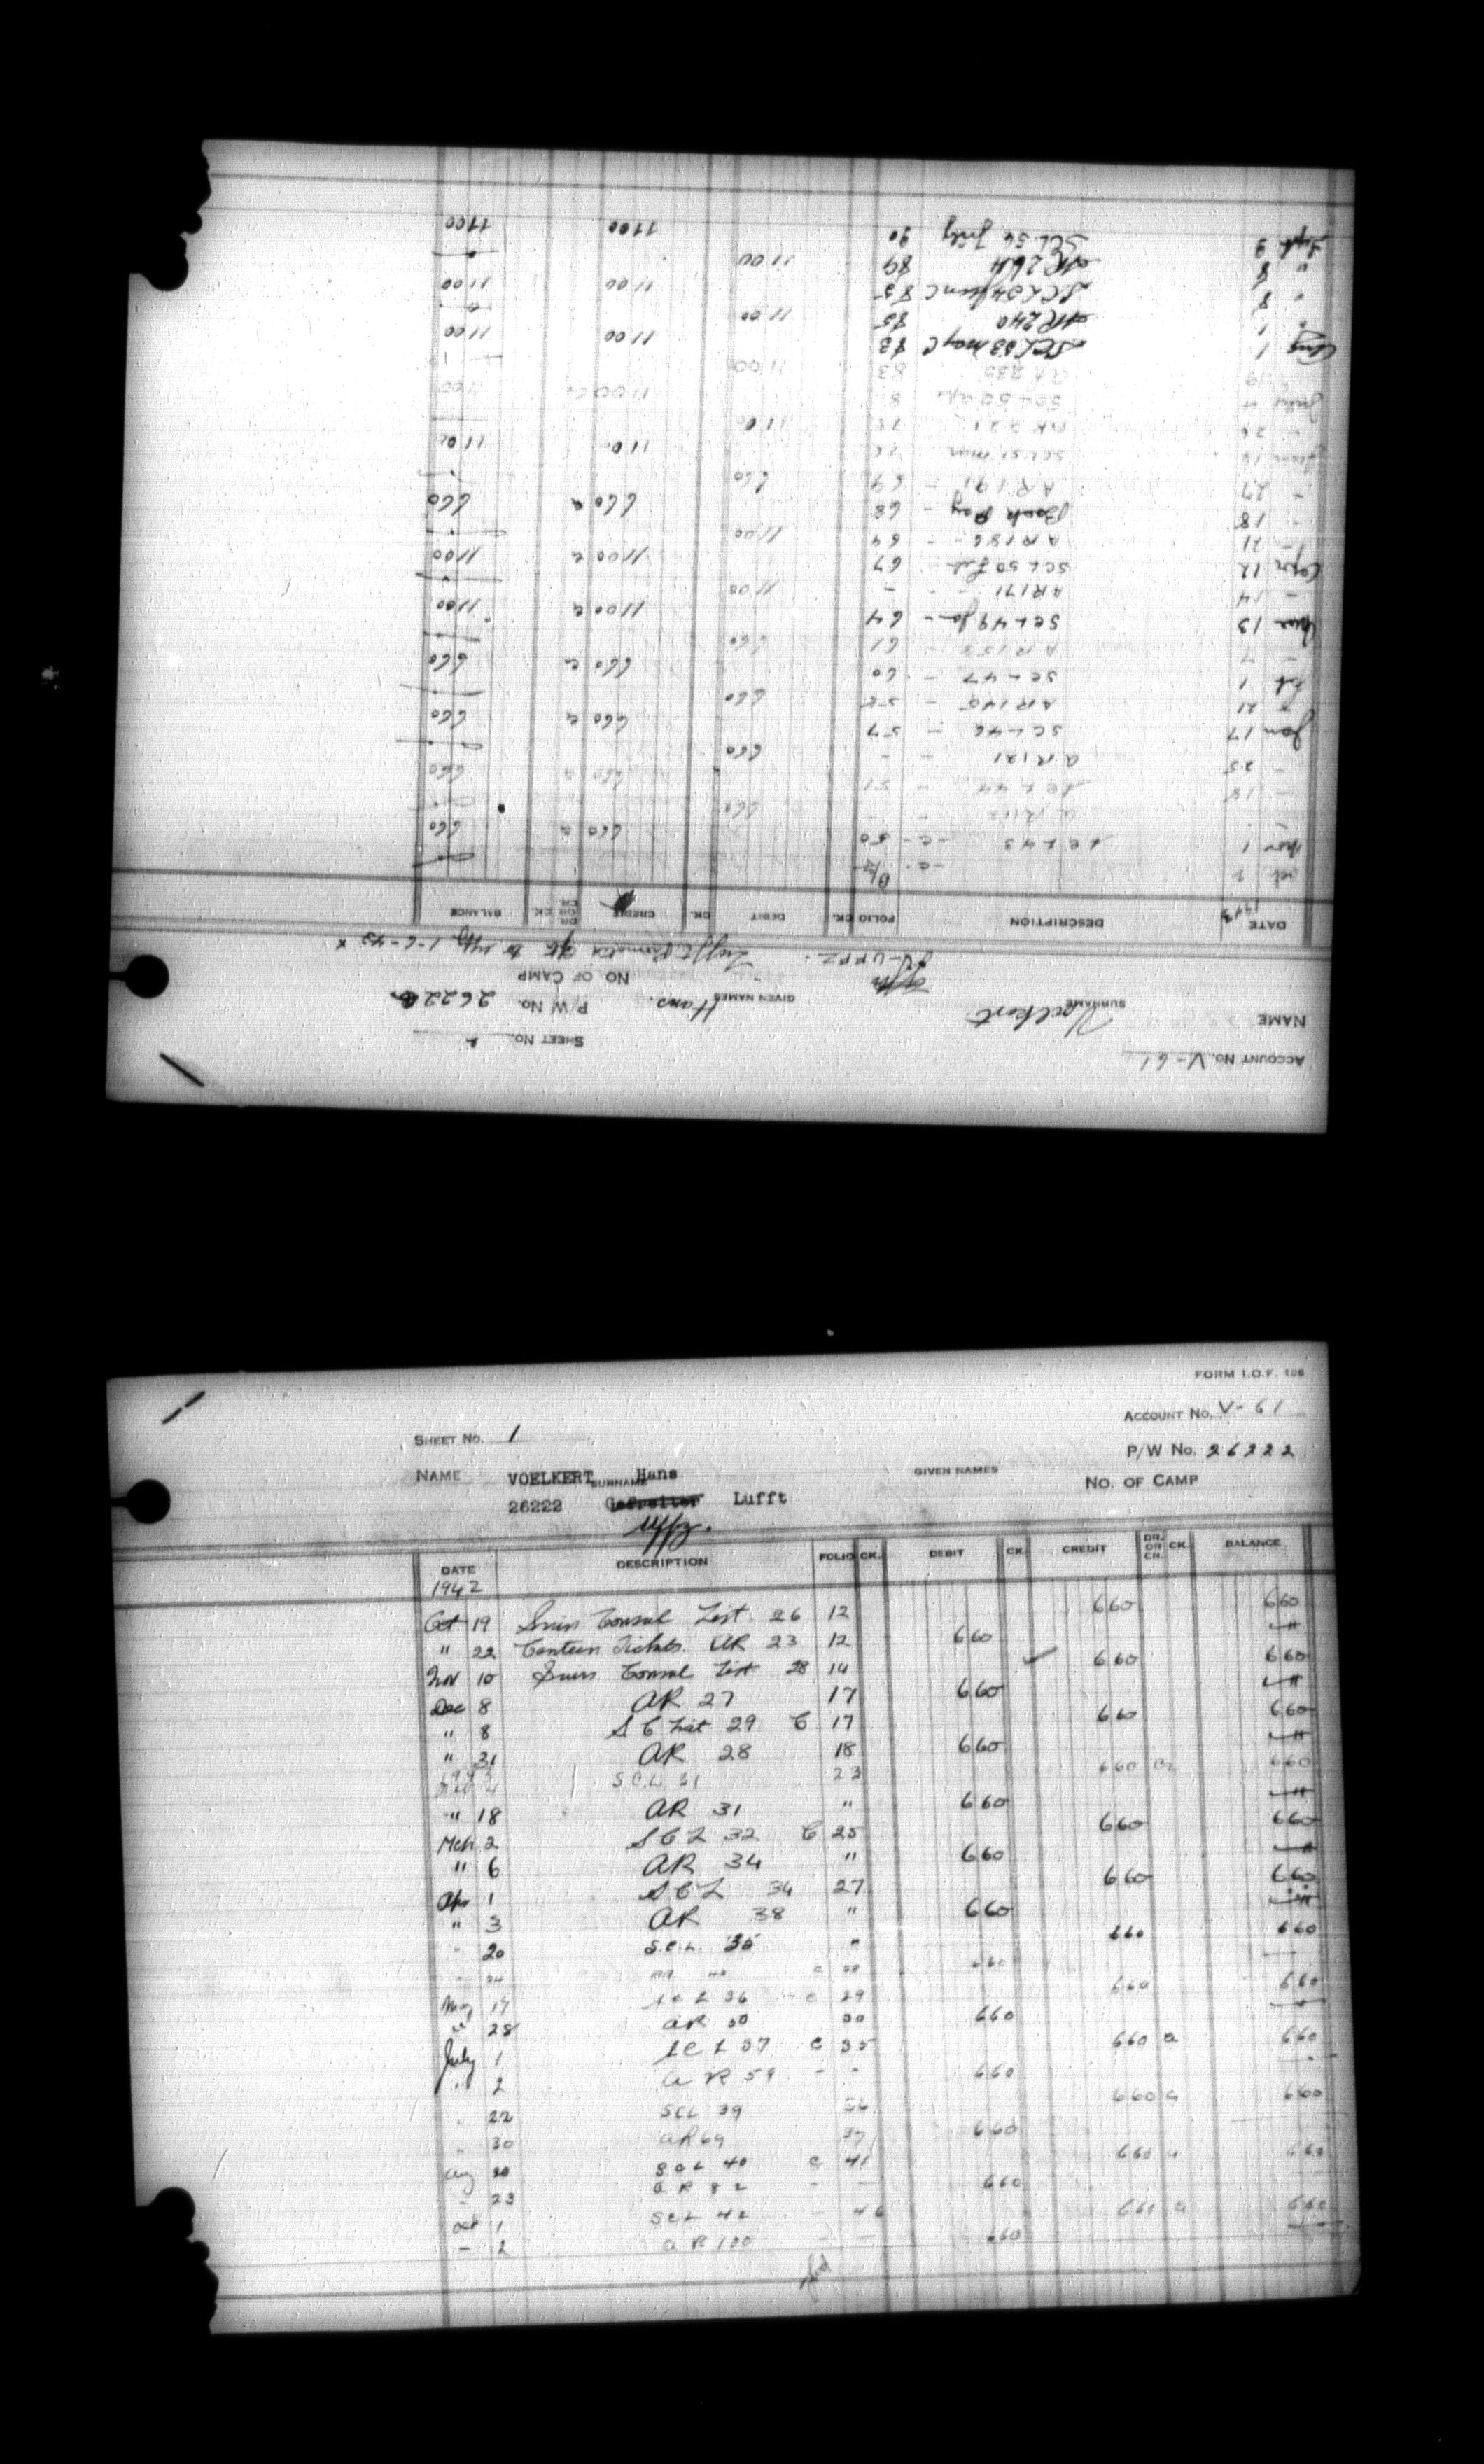 ACCOUNT No. V-61
SHEET No. 2
NAME Voelkert SURNAME Hans. GIVEN NAMES P/W No. 26222
NO OF CAMP
Lufft Promoted to Uffz 1-6-43 x
DATE DESCRIPTION FOLIO CK. DEBIT CK. CREDIT DR. OR CR. CK. BALANCE
1943
Oct 2 -c-
Nov 1 SCL43 -c- 50 660 660
AR 660
18 SCL 44 - 51 660 660
- 25 AR121 - - 660
Jan 17 SCL46 - 57 660 660
21 AR145 - 58 660
Feb 1 SCL47 - 60 660 660
- 7 AR158 - 61 660
Mar 13 SCL49 Jan - 64 1100 1100
- 14 AR171 - - 1100
Apr 12 SCL50 Feb - 67 1100 1100
- 21 AR186 - - 1100
- 18 Back Pay - 68 660 660
- 27 AR191 - 69 660
June SCL51 mar 1100 1100
- 26 AR 221 1100
July SCL52 apr 1100 1100
19 AR 235 83 1100
Aug 1 SCL53 May C 83 1100 1100
" 1 AR240 85 1100
" 8 SCL54 June C 85 1100 1100
" 8 AR264 89 1100
Sept 2 SCL 56 July 90 1100 1100
FORM I.O.F. 106
ACCOUNT No. V-61
SHEET No. 1
P/W No. 26222
NAME VOELKERT SURNAME Hans GIVEN NAMES
NO. OF CAMP
26222 Gefreiter Lufft
Uffz.
DATE DESCRIPTION FOLIO CK. DEBIT CK. CREDIT DR. OR CR. CK. BALANCE
1942
Oct 19 Swiss Consul List 26 12 660 660
" 22 Canteen Tickets. AR 23 12 660
Nov 10 Swiss Consul List 28 14 660 660
Dec 8 AR 27 17 660
" 8 S C List 29 C 17 660 660
" 31 AR 28 18 660
1943
4 S.C.L. 31 23 660 Cr 660
" 18 AR 31 " 660
Mch 2 S C L 32 C 25 660 660
" 6 AR 34 " 660
Apr 1 S C L 34 27 660 660
" 3 AR 38 " 660
" 20 S.C.L. 35 " 660 660
" 24 AR 660
May 17 SC L 36 - c 29 660 660
" 28 AR 50 30 660
July 1 SC L 37 C 35 660 660
" 2 AR 59 - - 660
" 22 SCL 39 36 660 660
" 30 AR 69 37 660
Aug 20 SCL 40 C 41 660 660
- 23 AR 82 - - 660
Oct 1 SCL 42 - 46 660 660
- 2 AR 100 - - 660